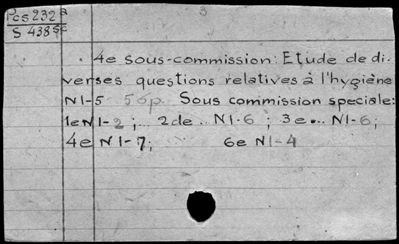 3
Pcs 232 a
S 438 sc
4e Sous-commission: Etude de di-
verses questions relatives à l'hygiène
N1-5 56p. Sous commission speciale:
1e N1-2; .. 2de .. N1-6; 3e ... N1-6;
4e N1-7; 6e N1-4